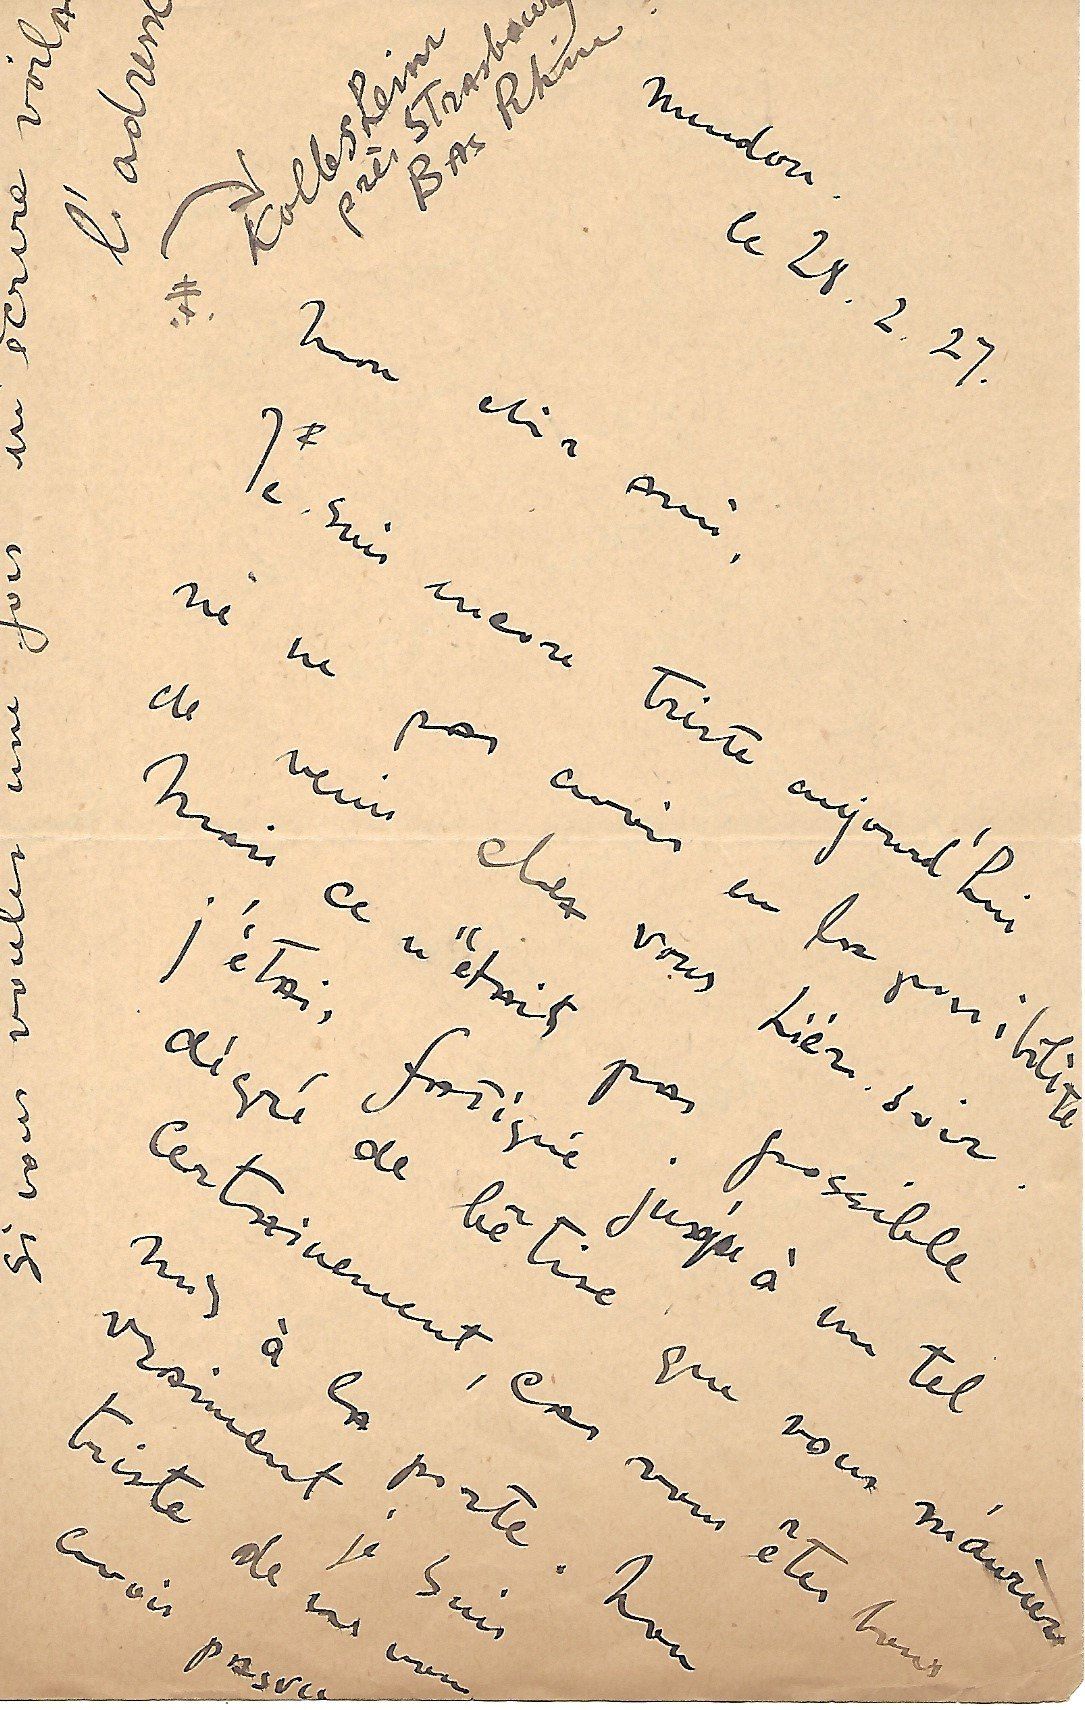 Meudon.
le 28. 2. 27.
Mon cher ami,
Je suis encore triste aujourd'hui
ne pas avoir eu la possibilité
de venir chez vous hier soir.
Mais ce n'était pas possible
j'étais fatigué jusqu'à un tel
dégré de bêtise que vous m'auriez
certainement, car vous êtes bons
mis à la porte. Non
vraiment je suis
triste de ne vous
avoir pas vu
Si vous voulez une fois m'écrire voilà
l'adresse
Kolbsheim
près Strasbourg
Bas Rhin